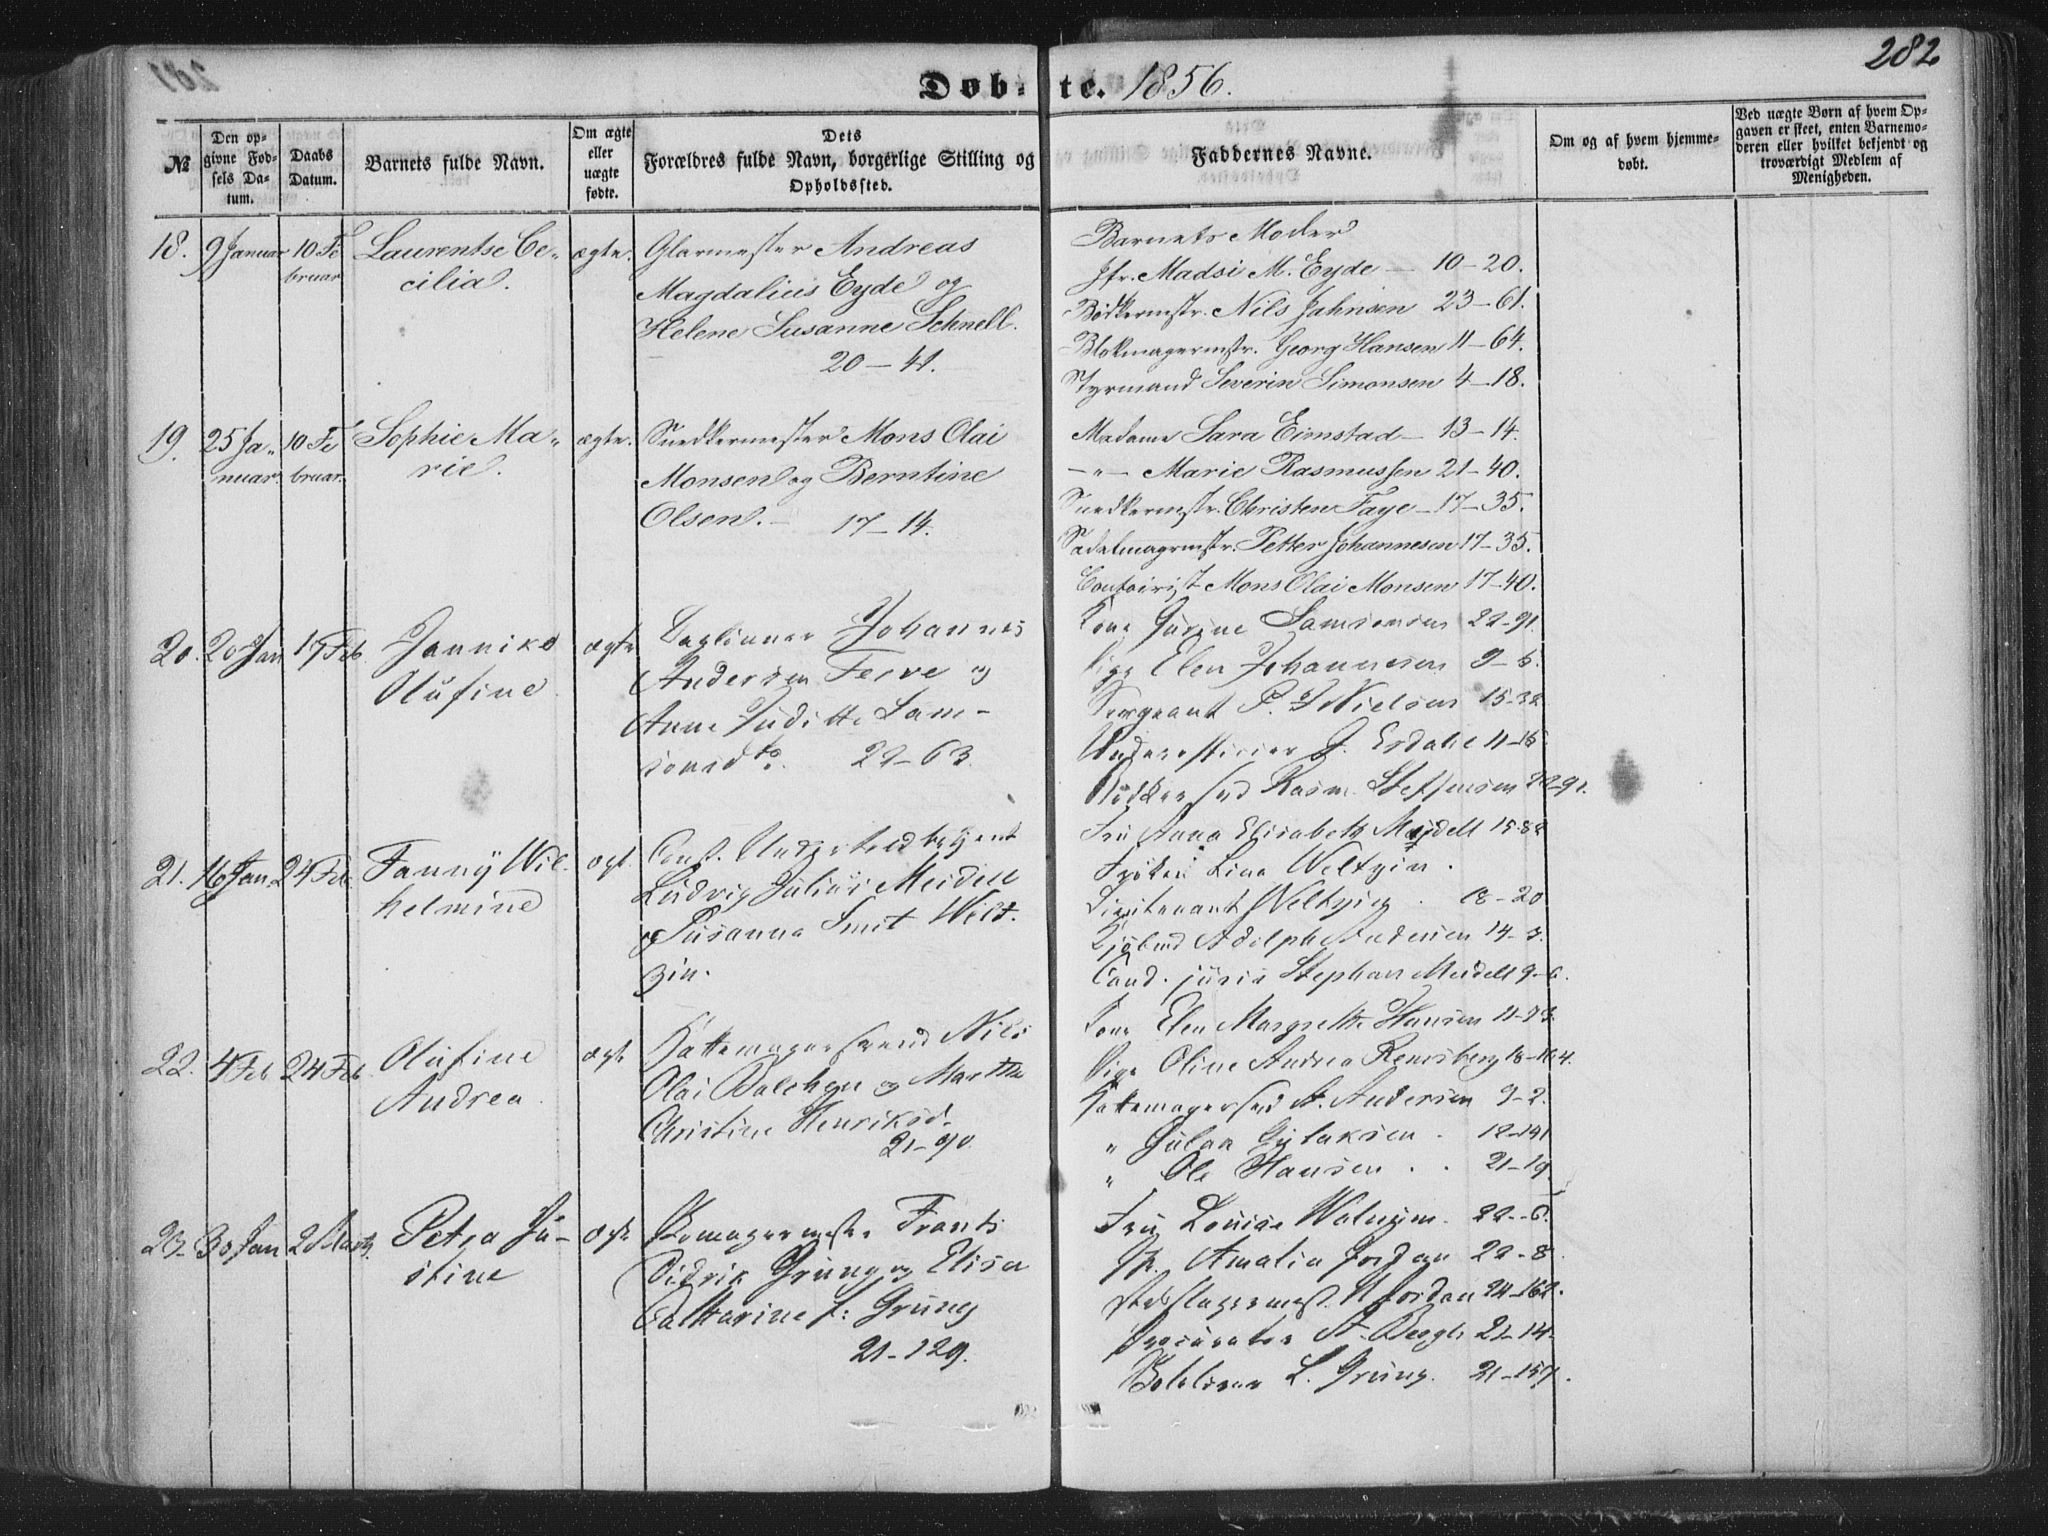 282
Døbte. 1856.
№
Den opgivne Fødsels Datum.
Daabs Datum.
Barnets fulde Navn.
Om ægte eller uægte fødte.
Dets Forældres fulde Navn, borgerlige Stilling og Opholdssted.
Faddernes Navne.
Om og af hvem hjemmedøbt.
Ved uægte Børn af hvem Opgaven er skeet, enten Barnemoderen eller hvilket bekjendt og troværdigt Medlem af Menigheden.
18. 9 Januar 10 Februar Laurentse Cecilia. ægte.
Glarmester Andreas
Magdalius Eyde og
Helene Susanne Schnell.
20-41.
Barnets Moder
Jfr. Madsi M. Eyde - 10-20.
Bødkermstr. Nils Jahnsen 23-61.
Blokmagermstr. Georg Hansen 11-64.
Styrmand Severin Simonsen 4-18.
19. 25 Januar 10 Februar. Sophie Marie. ægte.
Snedkermester Mons Olai
Monsen og Berntine
Olsen. - 17-14.
Madame Sara Eimstad - 13-14.
-"- Marie Rasmussen 21-40.
Snedkermstr. Christen Faye - 17-35.
Sadelmagrmstr. Petter Johannesen 17-35.
Contoirist Mons Olai Monsen 17-40.
20. 20 Jan 17 Feb. Jannike Olufine ægte
Daglönner Johannes
Andersen og
Anne Juditte Sam-
sonsdtr. 22-63.
Kone Samsonsen 22-91.
Pige Elen Johannesen 9-
Sergeant P. J Nielsen 15-32
Underofficier J. 11-
Bödkersvd Rasm. Steffensen 22-91.
21. 16 Jan. 24 Feb. Fanny Wilhelmine ægt.
Const.
Ludvig Julius Meidell
og Susanna Smit Welt-
zin.
Fru Anna Elisabeth Meidell 15-82
Fröken Lina Weltzin.
Lieutenant Weltzin. 18-20
Adolph Andersen 14-3.
Cand. juris Stephan Meidell 9-6.
22. 4 Feb 24 Feb. Olufine Andrea. ægte
Hattemagersvend Nils
Olai og Martha
Christine Henriksd.
21-90.
Kone Elen Margrethe Hansen 11-73.
Pige Oline Andrea Rensberg 18-164.
Hattemagersvd A. Andersen 9-2.
" 12-141
" Ole Hansen. . 21-19.
23. 30 Jan 2 Marts. Petra Justine ægte
Frants
Didrik Grung og Elisa
Catharine f: Grung
21-129.
Fru Louise 22-6.
Jfr. Amalia Jordan 22-8.
Jordan 24-162.
Procurator A. Bergh 21-14.
L. Grung. 21-157.